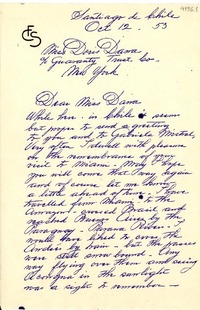 Santiago de Chile
Oct 12. 53
CFS
Miss Doris Dana
c/o Guaranty Trust Co-
New York
Dear Miss Dana
While here - in Chile it seems
but proper to send a greeting
to you and to Gabriela Mistral,
Very often I dwell with pleasure
on the remembrance of your
visit to Miami - May I hope
you will come that way again
and of course let me know
a little ahead of time - I have
travelled from Miami to the
Amazon - crossed Brazil and
reached Buenos Aires by the
Paraguay - Parana Rivers -
would have liked to cross the
Andes by train - but the passes
were still snow bound - Any
way flying over them and seeing
Aconcagua in the sunlight
was a sight to remember -